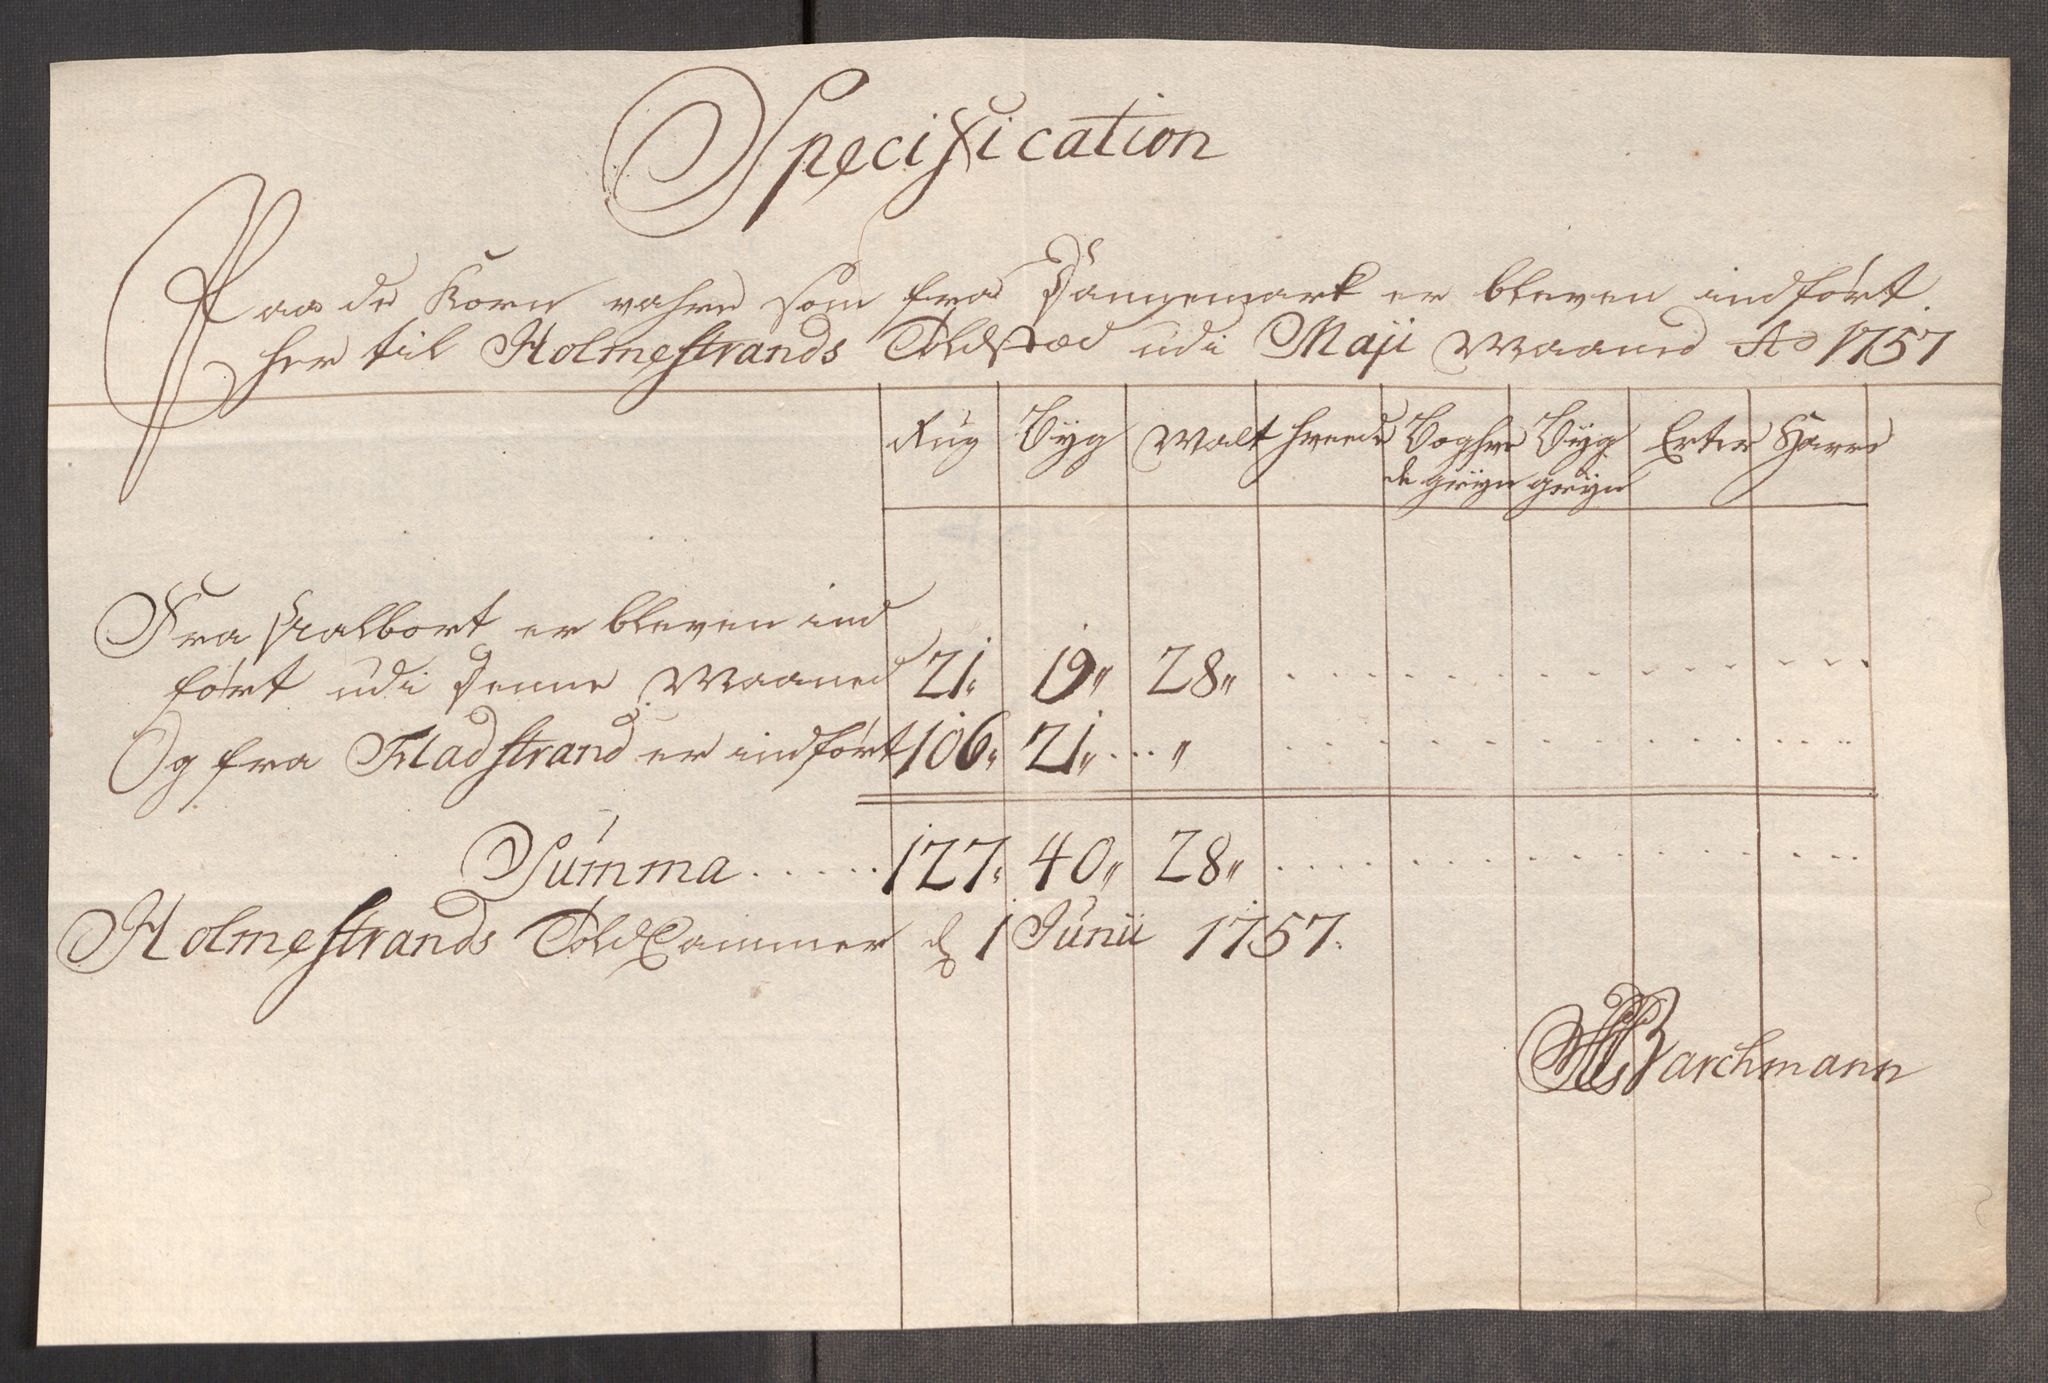 Specification
Paa de Korn vahre som fra Dannemark er bleven indført
her til Holmestrands Toldsted udi Maji Maaned Ao 1757
Rug Byg Malt Hvede Boghve Byg Erter Havre
de gryn gryn
Fra Aalborg er bleven ind
ført udi denne Maaned 21" 19" 28" . . . . . . . . . . . . . .
Og fra Fladstrand er indført 106" 21" ... " . . . . . . . . . . . . . .
Summa ...... 127" 40" 28" . . . . . . . . . . . . . .
Holmestrands Told Cammer d 1 Junii 1757.
Barchmann